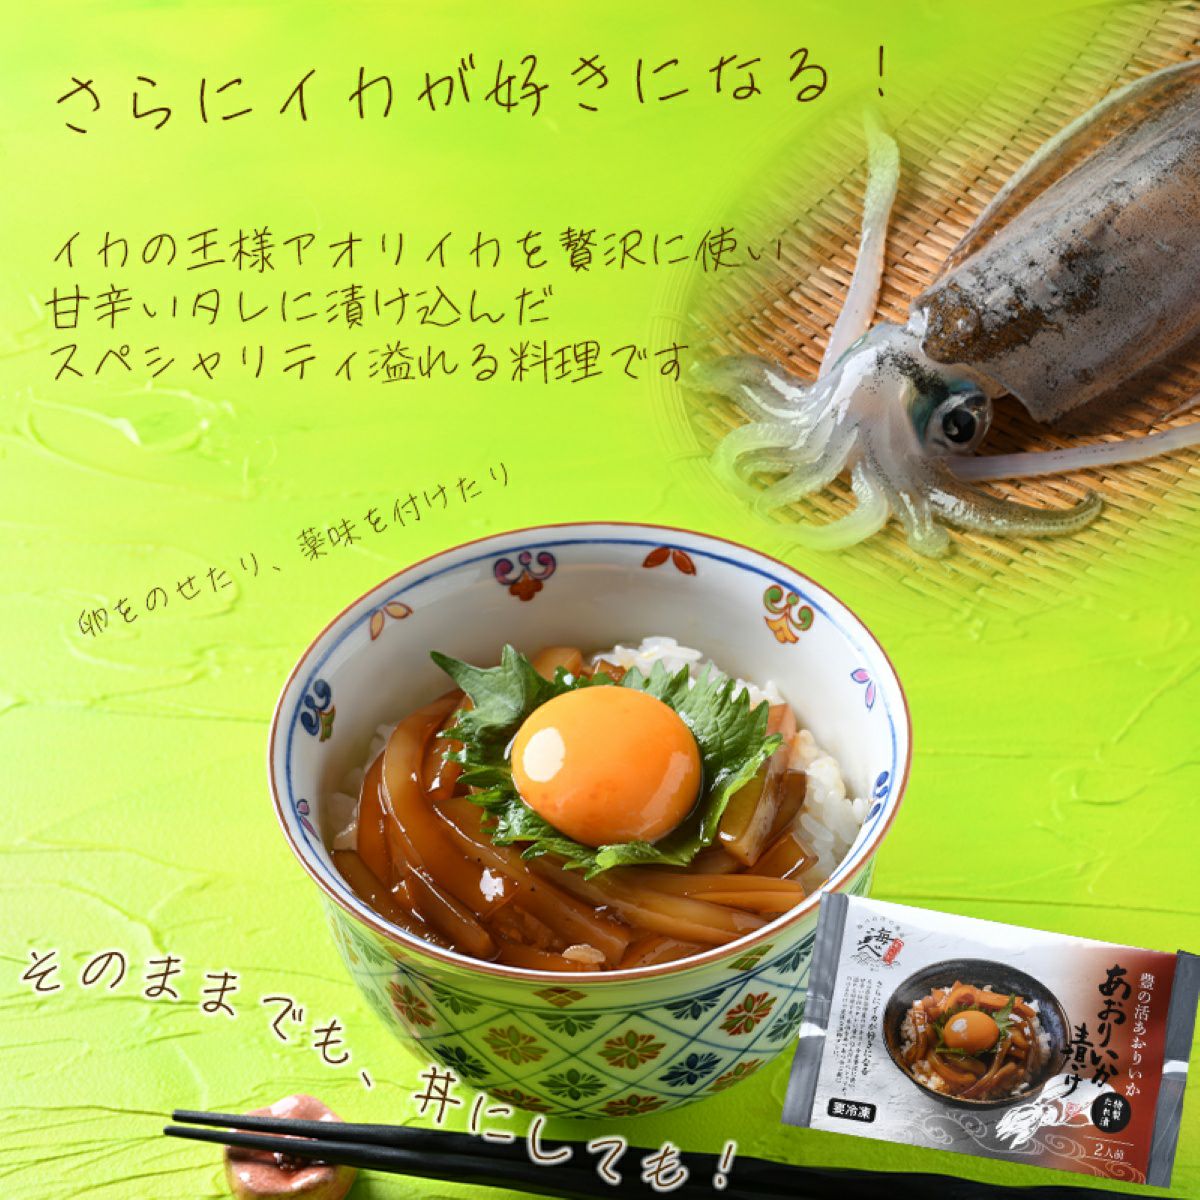 さらにイカが好きになる！
イカの王様アオリイカを贅沢に使い
甘辛いタレに漬け込んだ
スペシャリティ溢れる料理です
卵をのせたり、薬味を付けたり
そのままでも、丼にしても！
海べ
さらにイカが好きになる
豊の活あおりいか
あおりいか
漬け
特製
たれ漬
2人前
要冷凍